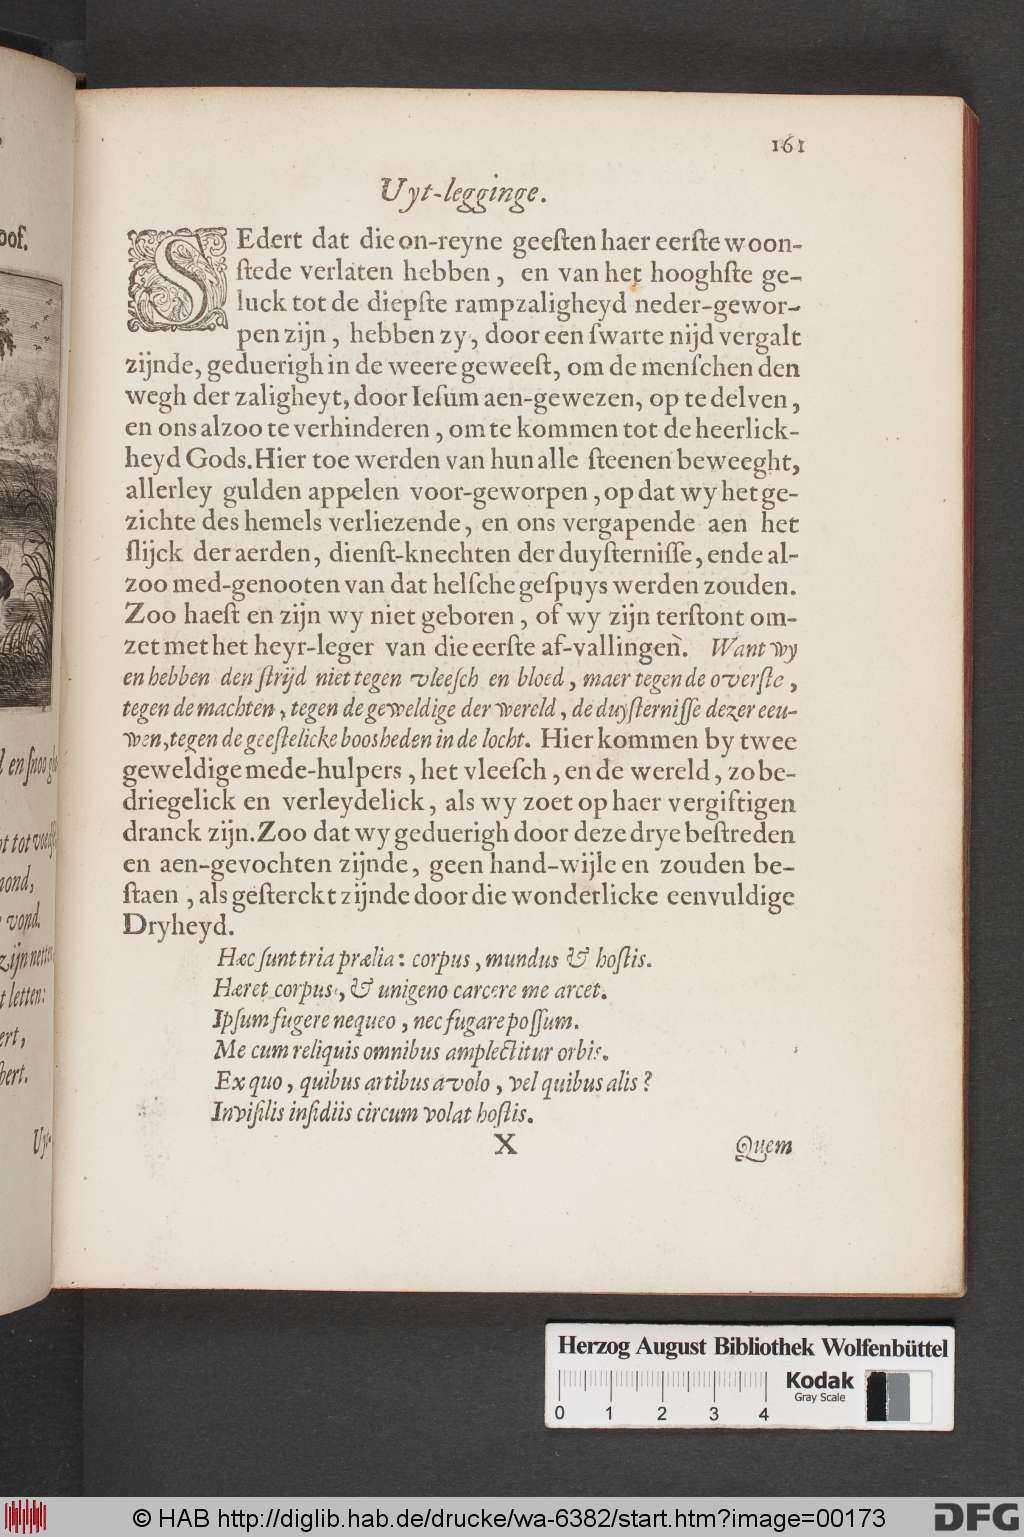 161
Uyt-legginge.
SEdert dat die on-reyne geeſten haer eerſte woon-
ſtede verlaten hebben, en van het hooghſte ge-
luck tot de diepſte rampzaligheyd neder-gewor-
pen zijn, hebben zy, door een ſwarte nijd vergalt
zijnde, geduerigh in de weere geweeſt, om de menſchen den
wegh der zaligheyt, door Ieſum aen-gewezen, op te delven,
en ons alzoo te verhinderen, om te kommen tot de heerlick-
heyd Gods. Hier toe werden van hun alle ſteenen beweeght,
allerley gulden appelen voor-geworpen, op dat wy het ge-
zichte des hemels verliezende, en ons vergapende aen het
ſlijck der aerden, dienſt-knechten der duyſterniſſe, ende al-
zoo med-genooten van dat helſche geſpuys werden zouden.
Zoo haeſt en zijn wy niet geboren, of wy zijn terſtont om-
zet met het heyr-leger van die eerſte af-vallingen. Want wy
en hebben den ſtrijd niet tegen vleeſch en bloed, maer tegen de overſte,
tegen de machten, tegen de geweldige der wereld, de duyſterniſſe dezer eeu-
wen, tegen de geeſtelicke boosheden in de locht. Hier kommen by twee
geweldige mede-hulpers, het vleeſch, en de wereld, zo be-
driegelick en verleydelick, als wy zoet op haer vergiftigen
dranck zijn. Zoo dat wy geduerigh door deze drye beſtreden
en aen-gevochten zijnde, geen hand-wijle en zouden be-
ſtaen, als geſterckt zijnde door die wonderlicke eenvuldige
Dryheyd.
Hæc ſunt tria prælia: corpus, mundus & hoſtis.
Hæret corpus, & unigeno carcere me arcet.
Ipſum fugere nequeo, nec fugare poſſum.
Me cum reliquis omnibus amplectitur orbis.
Ex quo, quibus artibus avolo, vel quibus alis?
Inviſilis inſidiis circum volat hoſtis.
X
Quem
oof.
en ſnoo
tot
mond,
vond.
zijn
letten:
Uyt-
Herzog August Bibliothek Wolfenbüttel
0 1 2 3 4
Kodak
Gray Scale
© HAB http://diglib.hab.de/drucke/wa-6382/start.htm?image=00173
DFG